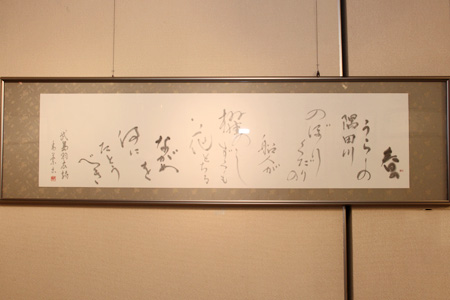 春
うらゝの
隅田川
のぼり
くだりの
船人が
櫂のしづくも
花とちる
ながめを
何に
たとう
べき